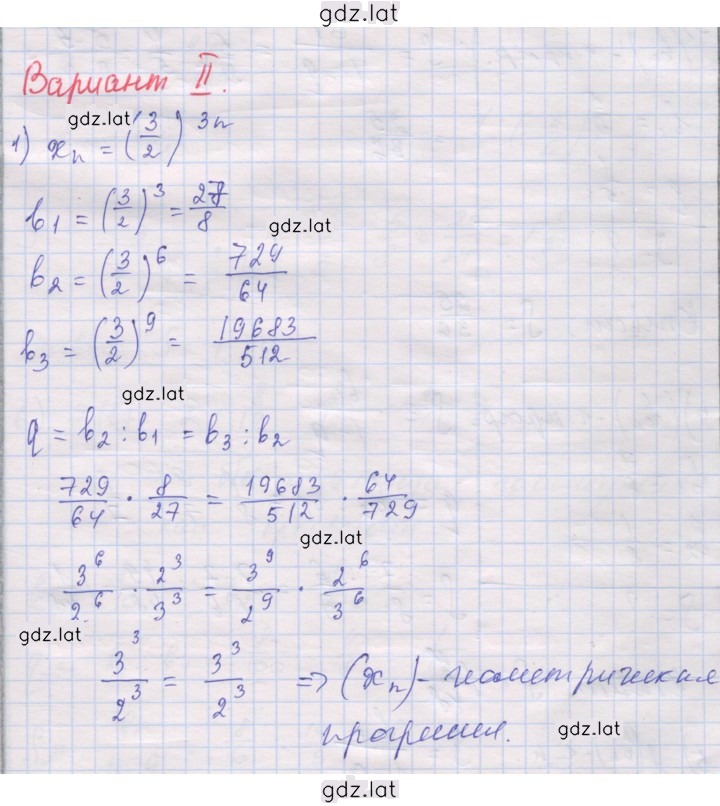 gdz.lat
Вариант II.
gdz.lat
1) xₙ = (3/2)³ⁿ
b₁ = (3/2)³ = 27/8
gdz.lat
b₂ = (3/2)⁶ = 729/64
b₃ = (3/2)⁹ = 19683/512
gdz.lat
q = b₂ : b₁ = b₃ : b₂
729/64 · 8/27 = 19683/512 · 64/729
gdz.lat
3⁶/2⁶ · 2³/3³ = 3⁹/2⁹ · 2⁶/3⁶
gdz.lat
3³/2³ = 3³/2³ => (xₙ) - геометрическая
прогрессия.
gdz.lat
gdz.lat